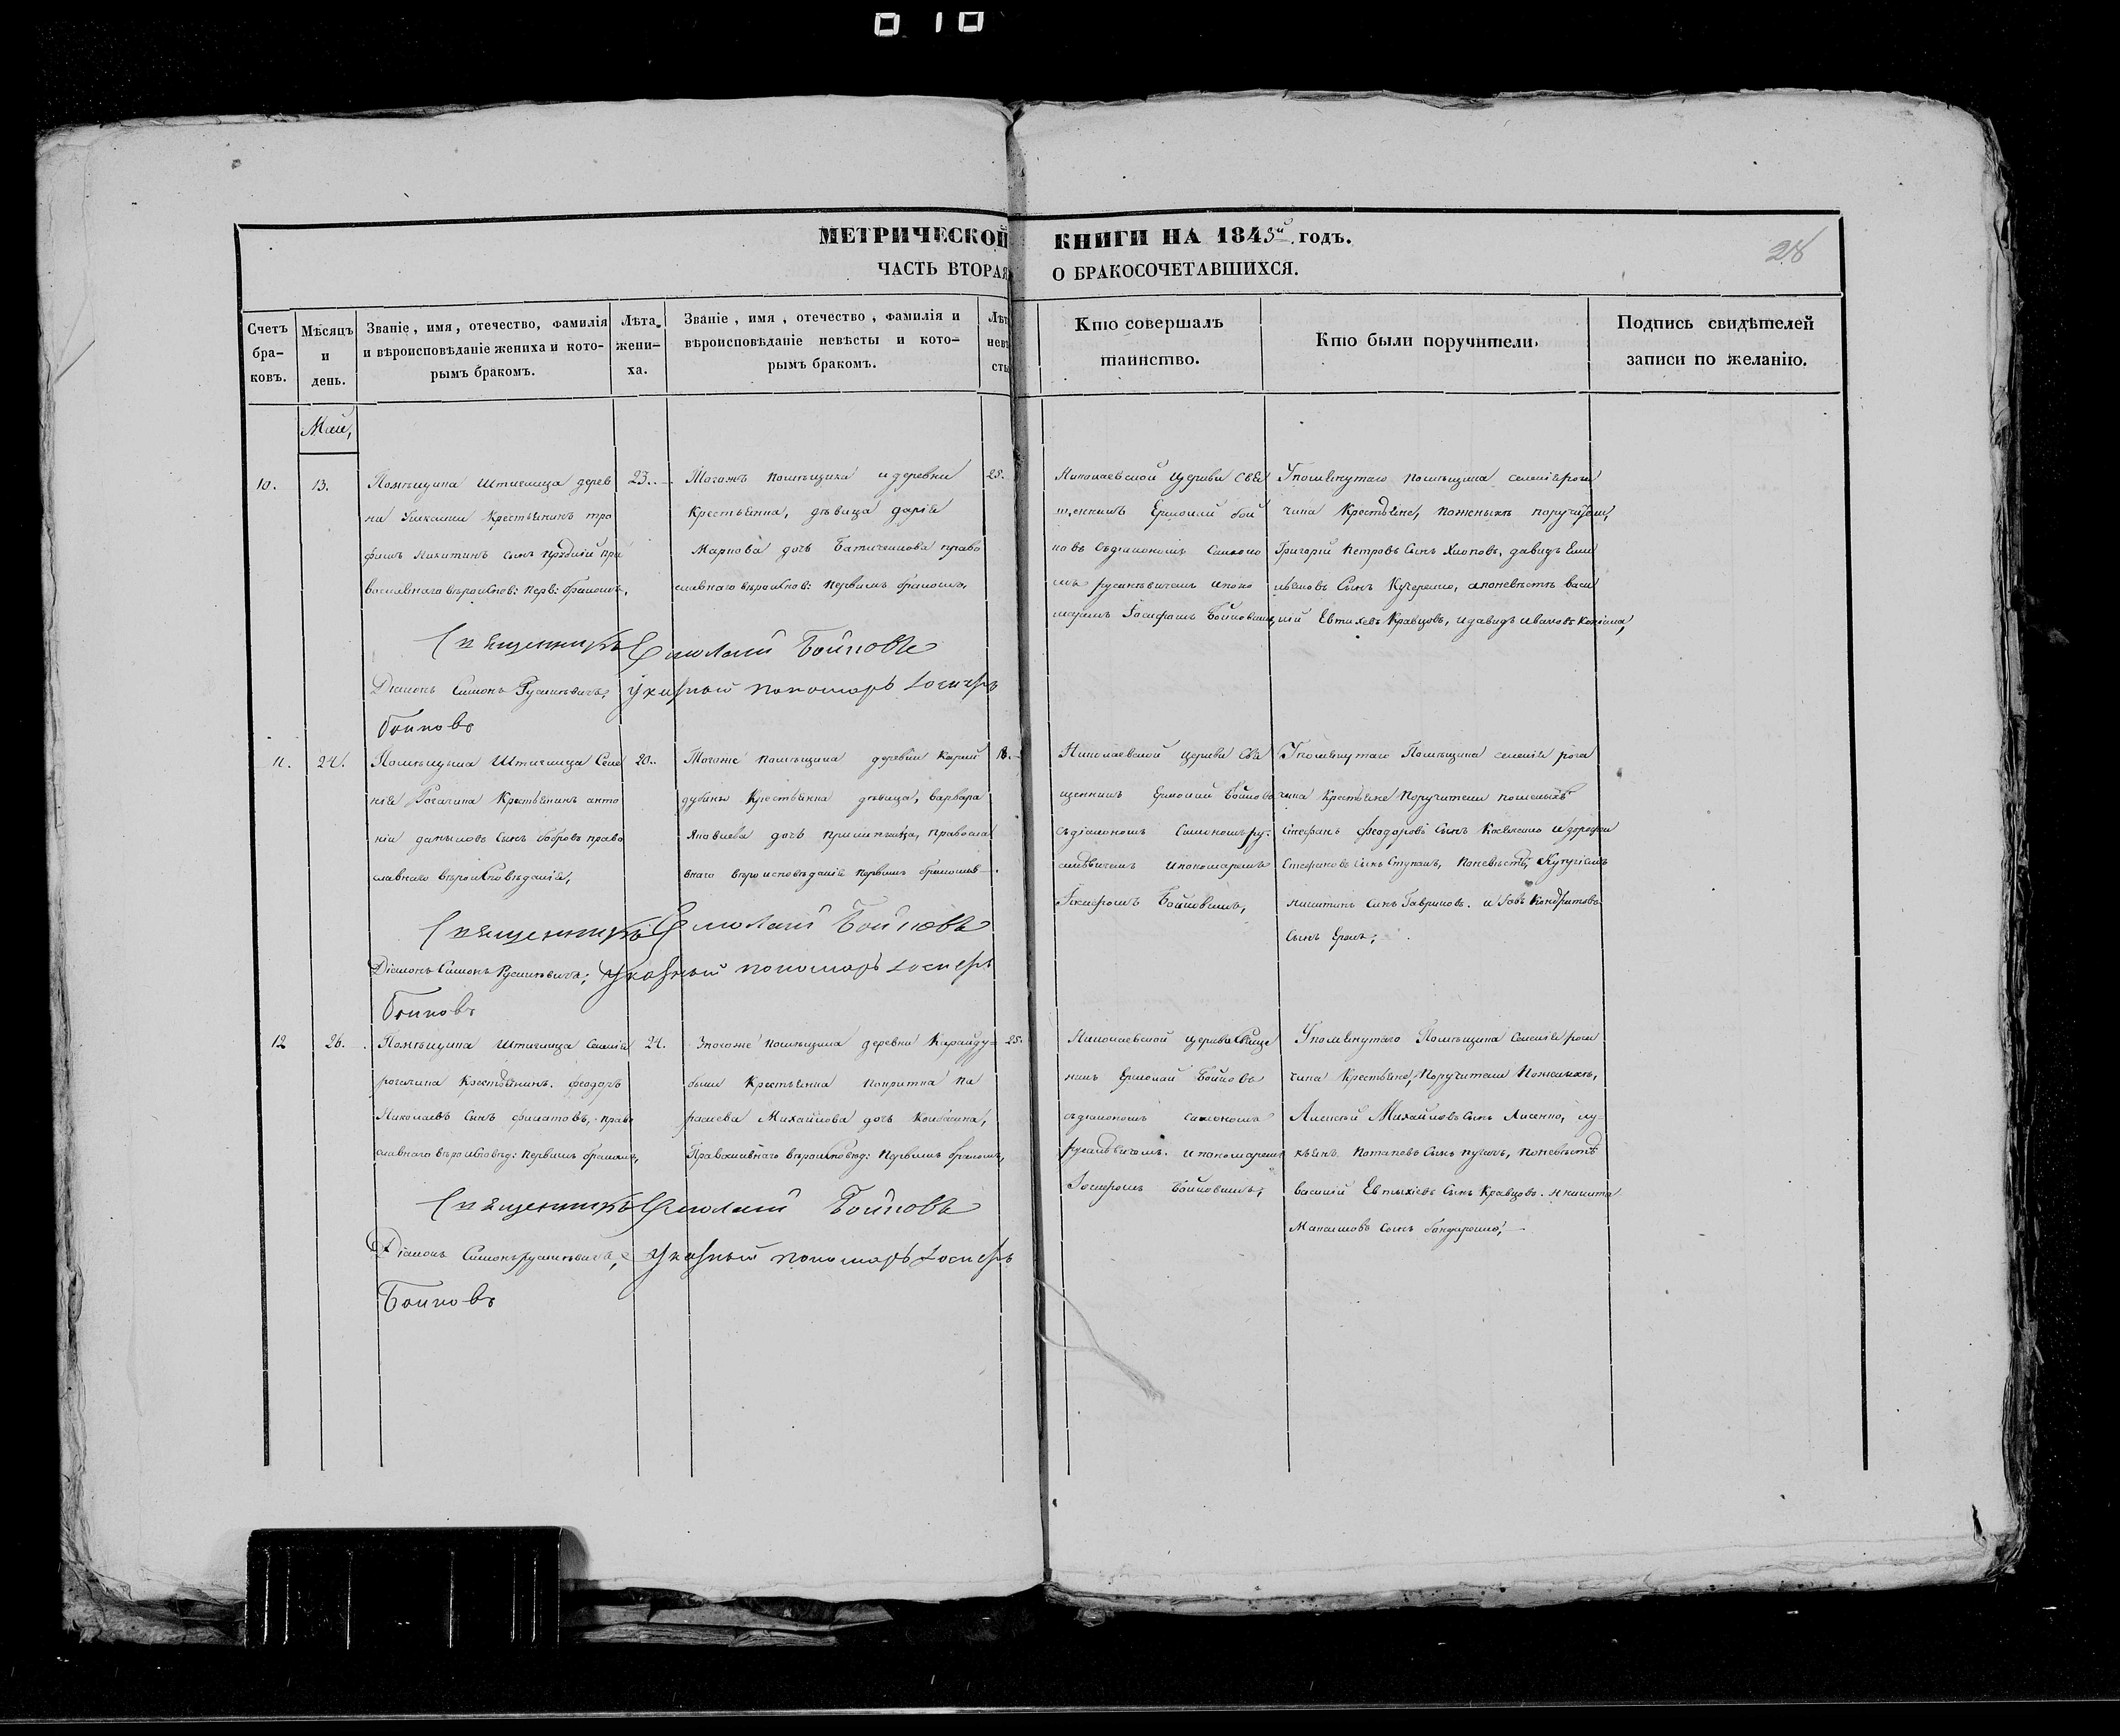 МЕТРИЧЕСКОЙ КНИГИ НА 1843й годъ.
28
ЧАСТЬ ВТОРАЯ О БРАКОСОЧЕТАВШИХСЯ.
Счетъ бра-ковъ.
Мѣсяцъ и день.
Званіе, имя, отечество, фамилія
и вѣроисповѣданіе жениха и кото-
рымъ бракомъ.
Лѣта жени-ха.
Званіе, имя, отечество, фамилія и
вѣроисповѣданіе невѣсты и кото-
рымъ бракомъ.
Лѣт невѣ сты
Кто совершалъ
таинство.
Кто были поручители.
Подпись свидѣтелей
записи по желанію.
Май,
10.
13.
Помѣщика Штиглица дерев
ни крестьянинъ тро
фимъ Никитинъ сынъ пра
вославнаго вѣроиспов: перв: бракомъ,
23.
Тогожъ помѣщика и деревни
крестьянка, дѣвица дарія
Маркова дочь православнаго
вѣроиспов: первымъ бракомъ,
25.
Николаевской церкви Свя
щенникъ Ермолай Бой
ковъ съ діакономъ Симоно
мъ русаневичемъ и поно
маремъ Іосифомъ Бойковымъ,
Упомянутаго помѣщика селенія рога
чика крестьяне, пожених поручители,
Григорій Петровъ Сынъ Хлоповъ, давидъ Еми
льяновъ Сынъ Кучеренко, апоневѣстѣ васи
лій Евтихевъ Кравцовъ, и давидъ ивановъ
Священникъ Ермолай Бойковъ
Діаконъ Симонъ Русаневичъ, указный пономарь Іосифъ
Бойковъ
11.
24.
Помѣщика Штиглица Селе
нія Рогачика Крестьянинъ анто
ній даниловъ сынъ бобровъ право
славнаго вѣроисповѣданія,
20.
Тогоже помѣщика деревни Карай
дубины крестьянка дѣвица, варвара
Яковлева дочь правосла
внаго вѣроисповѣданія первымъ бракомъ
18.
Николаевской церкви Свя
щенникъ Ермолай Бойковъ
съ діакономъ Симономъ ру-
саневичемъ и пономаремъ
Іосифомъ Бойковымъ,
Упомянутаго Помѣщика селенія рога
чика Крестьяне Поручители поженихѣ
стефанъ Феодоровъ Сынъ и дорофей
Стефановъ сынъ Ступакъ, поневѣстѣ,
никитинъ сынъ Гавриловъ. и Іовъ Кондратовъ
Сынъ
Священникъ Ермолай Бойковъ
Діаконъ Симонъ Русаневичъ; указный пономарь Іосифъ
Бойковъ
12
26.
Помѣщика Штиглица Селенія
рогачика Крестьянинъ. феодоръ
Николаевъ Сынъ филатовъ, право
славнаго вѣроисповѣд: первымъ бракомъ,
24.
Этогоже помѣщика деревни Карайду-
бины Крестьянка
Михайлова дочь
Православнаго вѣроисповѣд: Первымъ бракомъ,
25.
Николаевской церкви Свяще
никъ Ермолай Бойковъ
съ діакономъ симономъ
русаневичемъ. и пономаремъ
Іосифомъ Бойковымъ;
Упомянутаго Помѣщика Селенія рога
чика Крестьяне, Поручители Поженихѣ,
Алексѣй Михайловъ Сынъ Лисенко, лу-
кьянъ Потаповъ Сынъ поневѣстѣ
василій Евтыхіевъ Сынъ Кравцовъ. и никита
Максимовъ Сынъ бондаренко,
Священникъ Ермолай Бойковъ
Діаконъ Симонъ русаневичъ, указный пономарь Іосифъ
Бойковъ